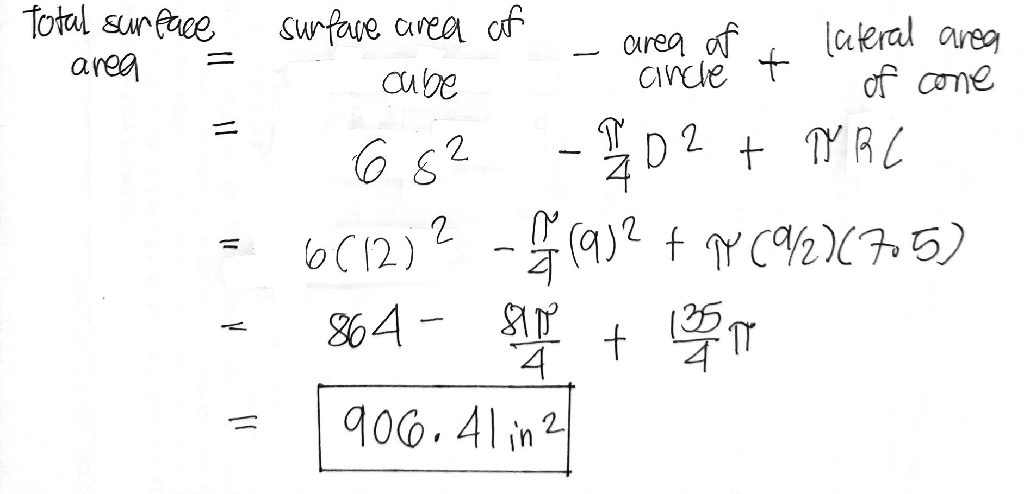 Total surface area = surface area of cube - area of circle + lateral area of cone
= 6 s² - π/4 D² + π R L
= 6(12)² - π/4 (9)² + π (9/2)(7.5)
= 864 - 81π/4 + 135/4 π
= 906.41 in²